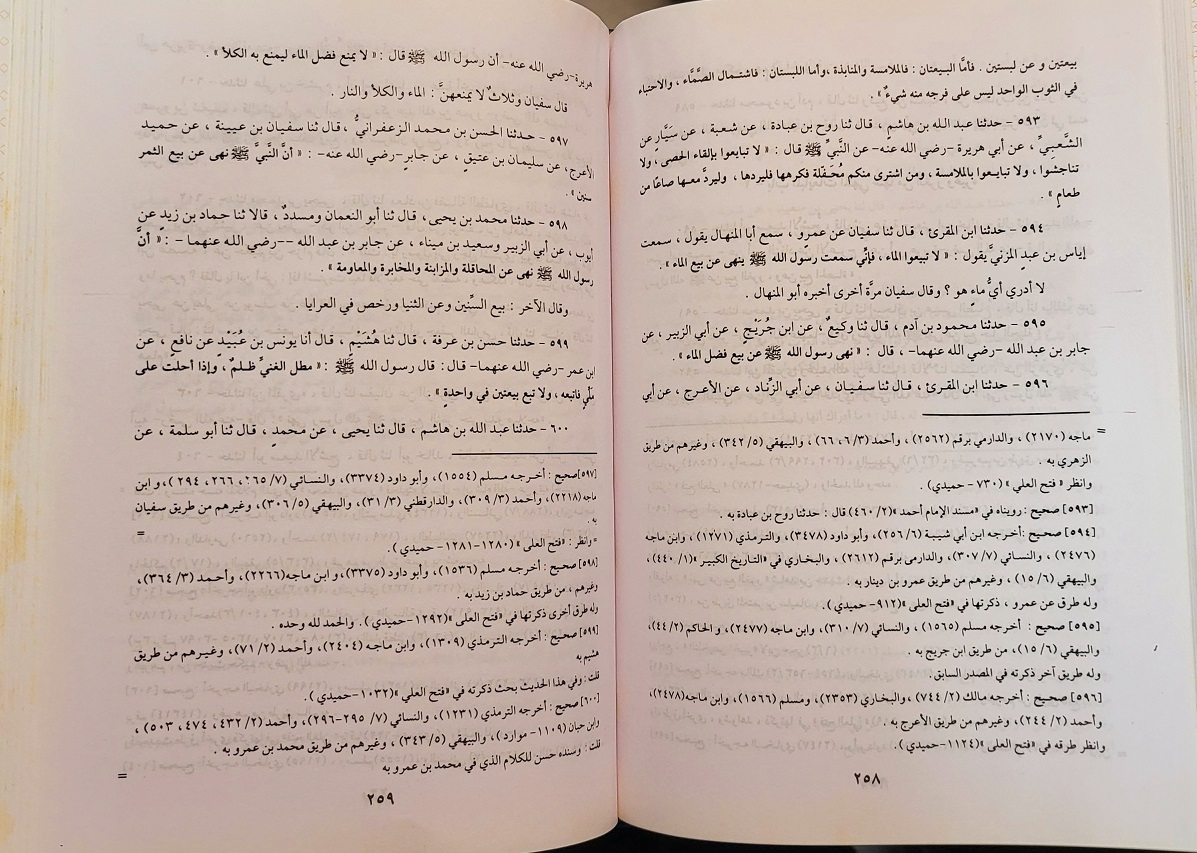 بيعتين و عن لبستين . فأمَّا البيعتان : فالملامسة والمنابذة ،وأما اللبستان : فاشتمال الصَّمَّاء ، والاحتباء
في الثوب الواحد ليس على فرجه منه شيءٌ» .
٥٩٣ – حدثنا عبد الله بن هاشم ، قال ثنا روح بن عبادة ، عن شعبة ، عن سَيَّارٍ عن
الشَّعبيِّ ، عن أبي هريرة –رضي الله عنه– عن النَّبيِّ ﷺ قال : « لا تبايعوا بإلقاء الحصى ، ولا
تناجشوا ، ولا تبايعوا بالملامسة ، ومن اشترى منكم مُحَفّلة فكرهها فليردها ، وليردَّ معها صاعًا من
طعامٍ » .
٥٩٤ – حدثنا ابن المقرئ ، قال ثنا سفيان عن عمرٍو ، سمع أبا المنهال يقول ، سمعت
إياس بن عبدٍ المزنيَّ يقول : « لا تبيعوا الماء ، فإنِّي سمعت رسول الله ﷺ ينهى عن بيع الماء » .
لا أدري أيُّ ماءٍ هو ؟ وقال سفيان مرَّة أخرى أخبره أبو المنهال .
٥٩٥ – حدثنا محمود بن آدم ، قال ثنا وكيعٌ ، عن ابن جُرَيْجٍ ، عن أبي الزبير ، عن
جابر بن عبد الله –رضي الله عنهما– ، قال : « نهى رسول الله ﷺ عن بيع فضل الماء » .
٥٩٦ – حدثنا ابن المقرئ ، قال ثنا سفيان ، عن أبي الزِّناد ، عن الأعرج ، عن أبي
= ماجه (٢١٧٠) ، والدارمي برقم (٢٥٦٢) ، وأحمد (٣/ ٦، ٦٦) ، والبيهقي (٥/ ٣٤٢) ، وغيرهم من طريق
الزهري به .
وانظر « فتح العلي » (٧٣٠– حميدي) .
[٥٩٣] صحيح : رويناه في «مسند الإمام أحمد» (٢/ ٤٦٠) قال : حدثنا روح بن عبادة به .
[٥٩٤] صحيح :أخرجه ابن أبي شيبة (٦/ ٢٥٦)، وأبو داود (٣٤٧٨)، والترمذي (١٢٧١)، وابن ماجه
(٢٤٧٦) ، والنسائي (٧/ ٣٠٧)، والدارمي برقم (٢٦١٢) ، والبخاري في «التاريخ الكبير »(١/ ٤٤٠)،
والبيهقي (٦/ ١٥) ، وغيرهم من طريق عمرو بن دينار به .
وله طرق عن عمرو ، ذكرتها في «فتح العلى »(٩١٢– حميدي).
[٥٩٥] صحيح : أخرجه مسلم (١٥٦٥) ، والنسائي (٧/ ٣١٠)، وابن ماجه (٢٤٧٧) ، والحاكم (٢/ ٤٤)،
والبيهقي (٦/ ١٥)، من طريق ابن جريج به .
وله طريق آخر ذكرته في المصدر السابق .
[٥٩٦] صحيح : أخرجه مالك (٢/ ٧٤٤)، والبخاري (٢٣٥٣)، ومسلم (١٥٦٦) ، وابن ماجه(٢٤٧٨)،
وأحمد (٢/ ٢٤٤) ، وغيرهم من طريق الأعرج به .
وانظر طرقه في «فتح العلى» (١١٢٤–حميدي).
٢٥٨
هريرة–رضي الله عنه– أن رسول الله ﷺ قال : « لا يمنع فضل الماء ليمنع به الكلأ» .
قال سفيان وثلاثٌ لا يمنعهنَّ : الماء والكلأ والنار .
٥٩٧ – حدثنا الحسن بن محمد الزعفرانيُّ ، قال ثنا سفيان بن عيينة ، عن حميد
الأعرج، عن سليمان بن عتيقٍ ، عن جابرٍ–رضي الله عنه– : « أنَّ النَّبيَّ ﷺ نهى عن بيع الثمر
سنين» .
٥٩٨ – حدثنا محمد بن يحيى، قال ثنا أبو النعمان ومسددٌ، قالا ثنا حماد بن زيدٍ عن
أيوب ، عن أبي الزبير وسعيد بن ميناء ، عن جابر بن عبد الله ––رضي الله عنهما – :« أنَّ
رسول الله ﷺ نهى عن المحاقلة والمزابنة والمخابرة والمعاومة » .
وقال الآخر : بيع السِّنين وعن الثنيا ورخص في العرايا .
٥٩٩ – حدثنا حسن بن عرفة ، قال ثنا هُشَيْمٌ ، قال أنا يونس بن عُبَيْدٍ عن نافعٍ ، عن
ابن عمر –رضي الله عنهما– قال : قال رسول الله ﷺ : « مطل الغنيِّ ظلمٌ ، وإذا أحلت على
مَلِيٍّ فاتبعه ، ولا تبع بيعتين في واحدةٍ » .
٦٠٠– حدثنا عبد الله بن هاشم ، قال ثنا يحيى ، عن محمدٍ ، قال ثنا أبو سلمة ، عن
[٥٩٧]صحيح : أخرجه مسلم (١٥٥٤) ، وأبو داود (٣٣٧٤) ، والنسائي (٧/ ٢٦٥، ٢٦٦، ٢٩٤ )، و ابن
ماجه (٢٢١٨)، وأحمد (٣/ ٣٠٩)، والدارقطني (٣/ ٣١)، والبيهقي (٥/ ٣٠٦)، وغيرهم من طريق سفيان
به . =
= وانظر : «فتح العلى »(١٢٨٠–١٢٨١– حميدي) .
[٥٩٨] صحيح : أخرجه مسلم (١٥٣٦) ، وأبو داود (٣٣٧٥)، وابن ماجه(٢٢٦٦)، وأحمد (٣/ ٣٦٤)،
وغيرهم ، من طريق حماد بن زيد به .
وله طرق أخرى ذكرتها في «فتح العلى »(١٢٩٢–حميدي) . والحمد لله وحده .
[٥٩٩] صحيح : أخرجه الترمذي (١٣٠٩) ، وابن ماجه (٢٤٠٤)، وأحمد (٢/ ٧١)، وغيرهم من طريق
هشيم به
قلت : وفي هذا الحديث بحث ذكرته في «فتح العلي »(١٠٣٢–حميدي).
[٦٠٠] صحيح : أخرجه الترمذي (١٢٣١) ، والنسائي (٧/ ٢٩٥–٢٩٦)، وأحمد (٢/ ٤٣٢، ٤٧٤، ٥٠٣) ،
وابن حبان (١١٠٩– موارد) ، والبيهقي (٥/ ٣٤٣) ، وغيرهم من طريق محمد بن عمرو به .
قلت : وسنده حسن للكلام الذي في محمد بن عمرو به =
٢٥٩